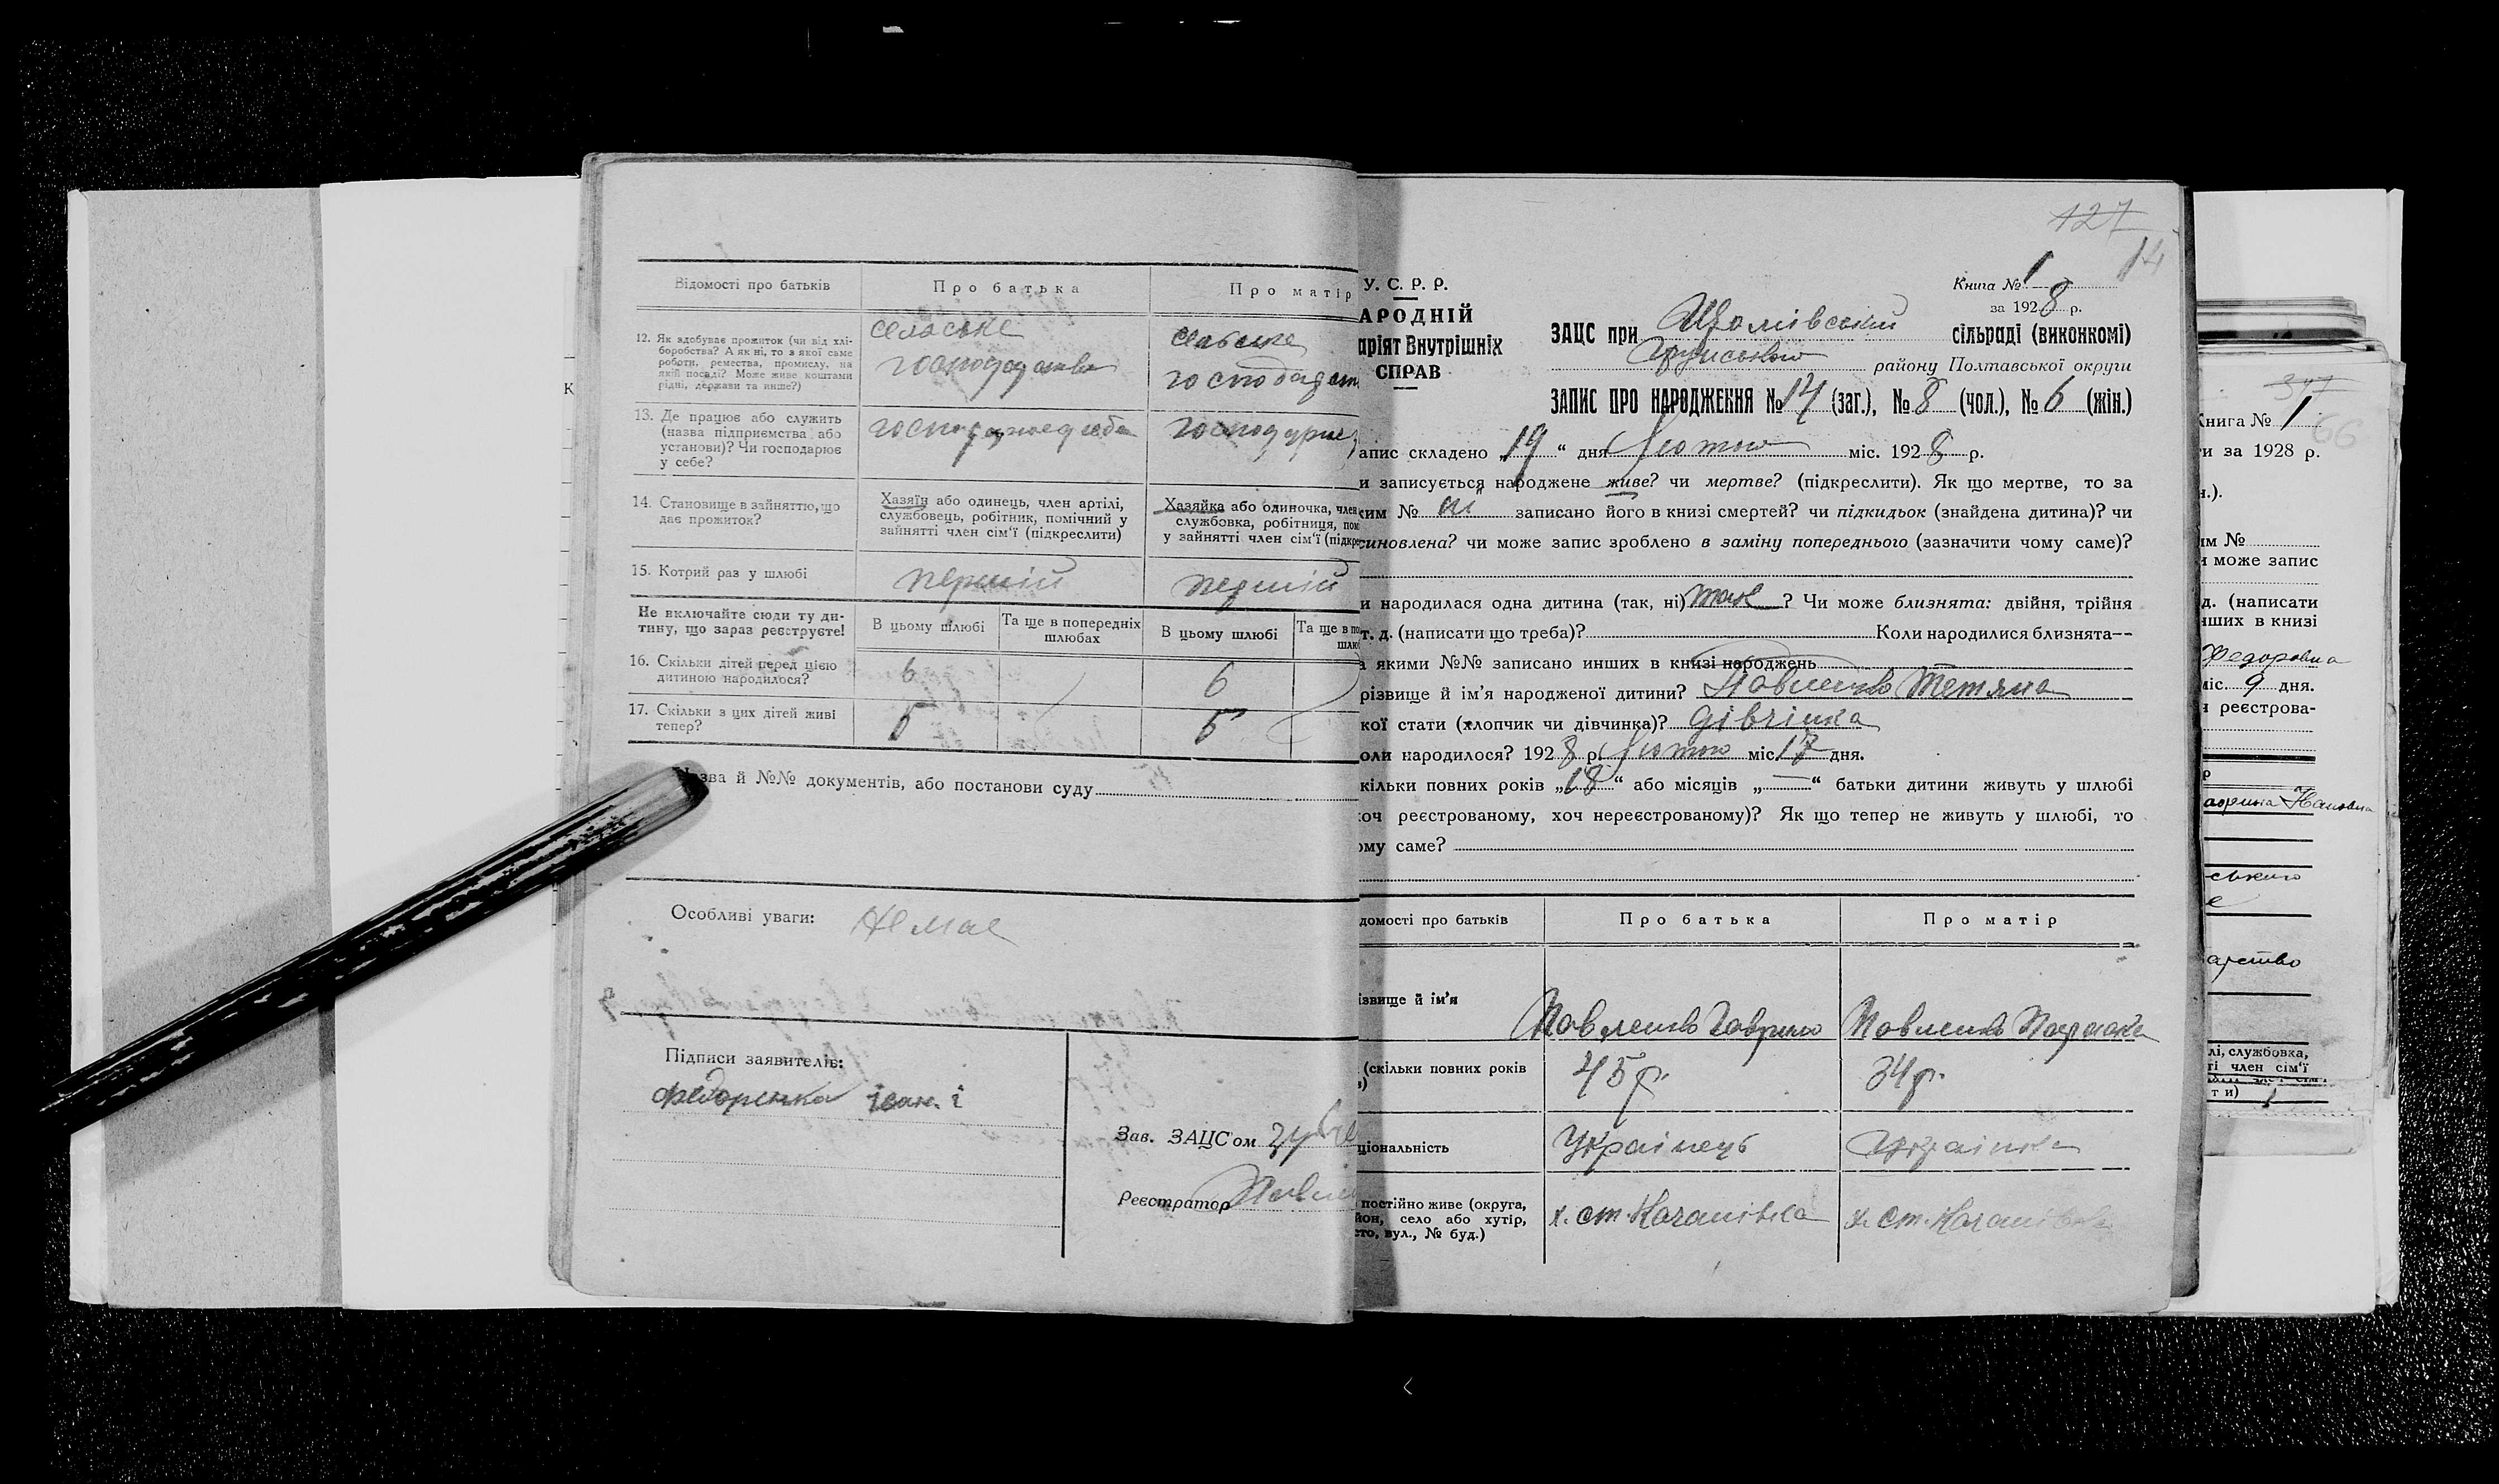 Відомості про батьків
Про батька
Про матір
12. Як здобуває прожиток (чи від хлі-
боробства? А як ні, то з якої саме
роботи, ремества, промислу, на
якій посаді? Може живе коштами
рідні, держави та инше?)
сельське
господарства
господарст
13. Де працює або служить
(назва підприємства або
установи)? Чи господарює
у себе?
14. Становище в зайняттю, що
дає прожиток?
Хазяїн або одинець, член артілі,
службовець, робітник, помічний у
зайнятті член сім'ї (підкреслити)
Хазяйка або одиночка, член
службовка, робітниця, пом
у зайнятті член сім'ї (підкре
15. Котрий раз у шлюбі
перший
перший
Не включайте сюди ту ди-
тину, що зараз реєструєте!
В цьому шлюбі
Та ще в попередніх
шлюбах
В цьому шлюбі
Та ще в по
шлю
16. Скільки дітей перед цією
дитиною народилося?
6
6
17. Скільки з цих дітей живі
тепер?
5
5
зва й №№ документів, або постанови суду
Особливі уваги: Немає
Підписи заявителів:
Федоренка іван. і
Зав. ЗАЦС'ом
Реєстратор
127
14
У. С. Р. Р.
АРОДНІЙ
аріят Внутрішніх
СПРАВ
Книга № 1
за 1928 р.
ЗАЦС при сільраді (виконкомі)
району Полтавської округи
ЗАПИС ПРО НАРОДЖЕННЯ № 14 (заг.), № 8 (чол.), № 6 (жін.)
апис складено „19“ дня Лютого міс. 1928 р.
и записується народжене живе? чи мертве? (підкреслити). Як що мертве, то за
ким № записано його в книзі смертей? чи підкидьок (знайдена дитина)? чи
синовлена? чи може запис зроблено в заміну попереднього (зазначити чому саме)?
и народилася одна дитина (так, ні) так? Чи може близнята: двійня, трійня
т. д. (написати що треба)? Коли народилися близнята—
а якими №№ записано инших в книзі народжень
різвище й ім'я народженої дитини? Павленко Тетяна
кої стати (хлопчик чи дівчинка)? дівчінка
оли народилося? 1928 р. Лютого міс 17 дня.
кільки повних років „18“ або місяців „—“ батьки дитини живуть у шлюбі
оч реєстрованому, хоч нереєстрованому)? Як що тепер не живуть у шлюбі, то
ому саме?
домості про батьків
Про батька
Про матір
ізвище й ім'я
Павленко Гаврило
Павленко Параска
(скільки повних років
45 р.
34 р.
ціональність
Українець
Українка
постійно живе (округа,
йон, село або хутір,
сто, вул., № буд.)
х. ст. Качанівка
х. ст. Качанівка
347
66
Книга № 1
и за 1928 р.
н.).
им №
и може запис
д. (написати
нших в книзі
Федоровна
міс. 9 дня.
и реєстрова-
р
ського
арство
лі, службовка,
ті член сім'ї
ти)